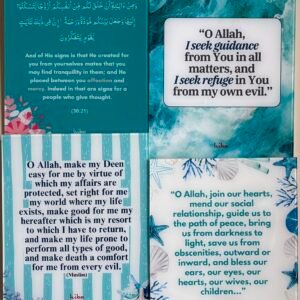 وَمِنْ آيَاتِهِ أَنْ خَلَقَ لَكُم مِّنْ أَنفُسِكُمْ أَزْوَاجًا لِّتَسْكُنُوا
إِلَيْهَا وَجَعَلَ بَيْنَكُم مَّوَدَّةً وَرَحْمَةً ۚ إِنَّ فِي ذَٰلِكَ لَآيَاتٍ
لِّقَوْمٍ يَتَفَكَّرُونَ
And of His signs is that He created for
you from yourselves mates that you
may find tranquility in them; and He
placed between you affection and
mercy. Indeed in that are signs for a
people who give thought.
(30:21)
“O Allah,
I seek guidance
from You in all
matters, and
I seek refuge in You
from my own evil.”
O Allah, make my Deen
easy for me by virtue of
which my affairs are
protected, set right for me
my world where my life
exists, make good for me my
hereafter which is my resort
to which I have to return,
and make my life prone to
perform all types of good,
and make death a comfort
for me from every evil.
(Muslim)
“O Allah, join our hearts,
mend our social
relationship, guide us to
the path of peace, bring
us from darkness to
light, save us from
obscenities, outward or
inward, and bless our
ears, our eyes, our
hearts, our wives, our
children...”